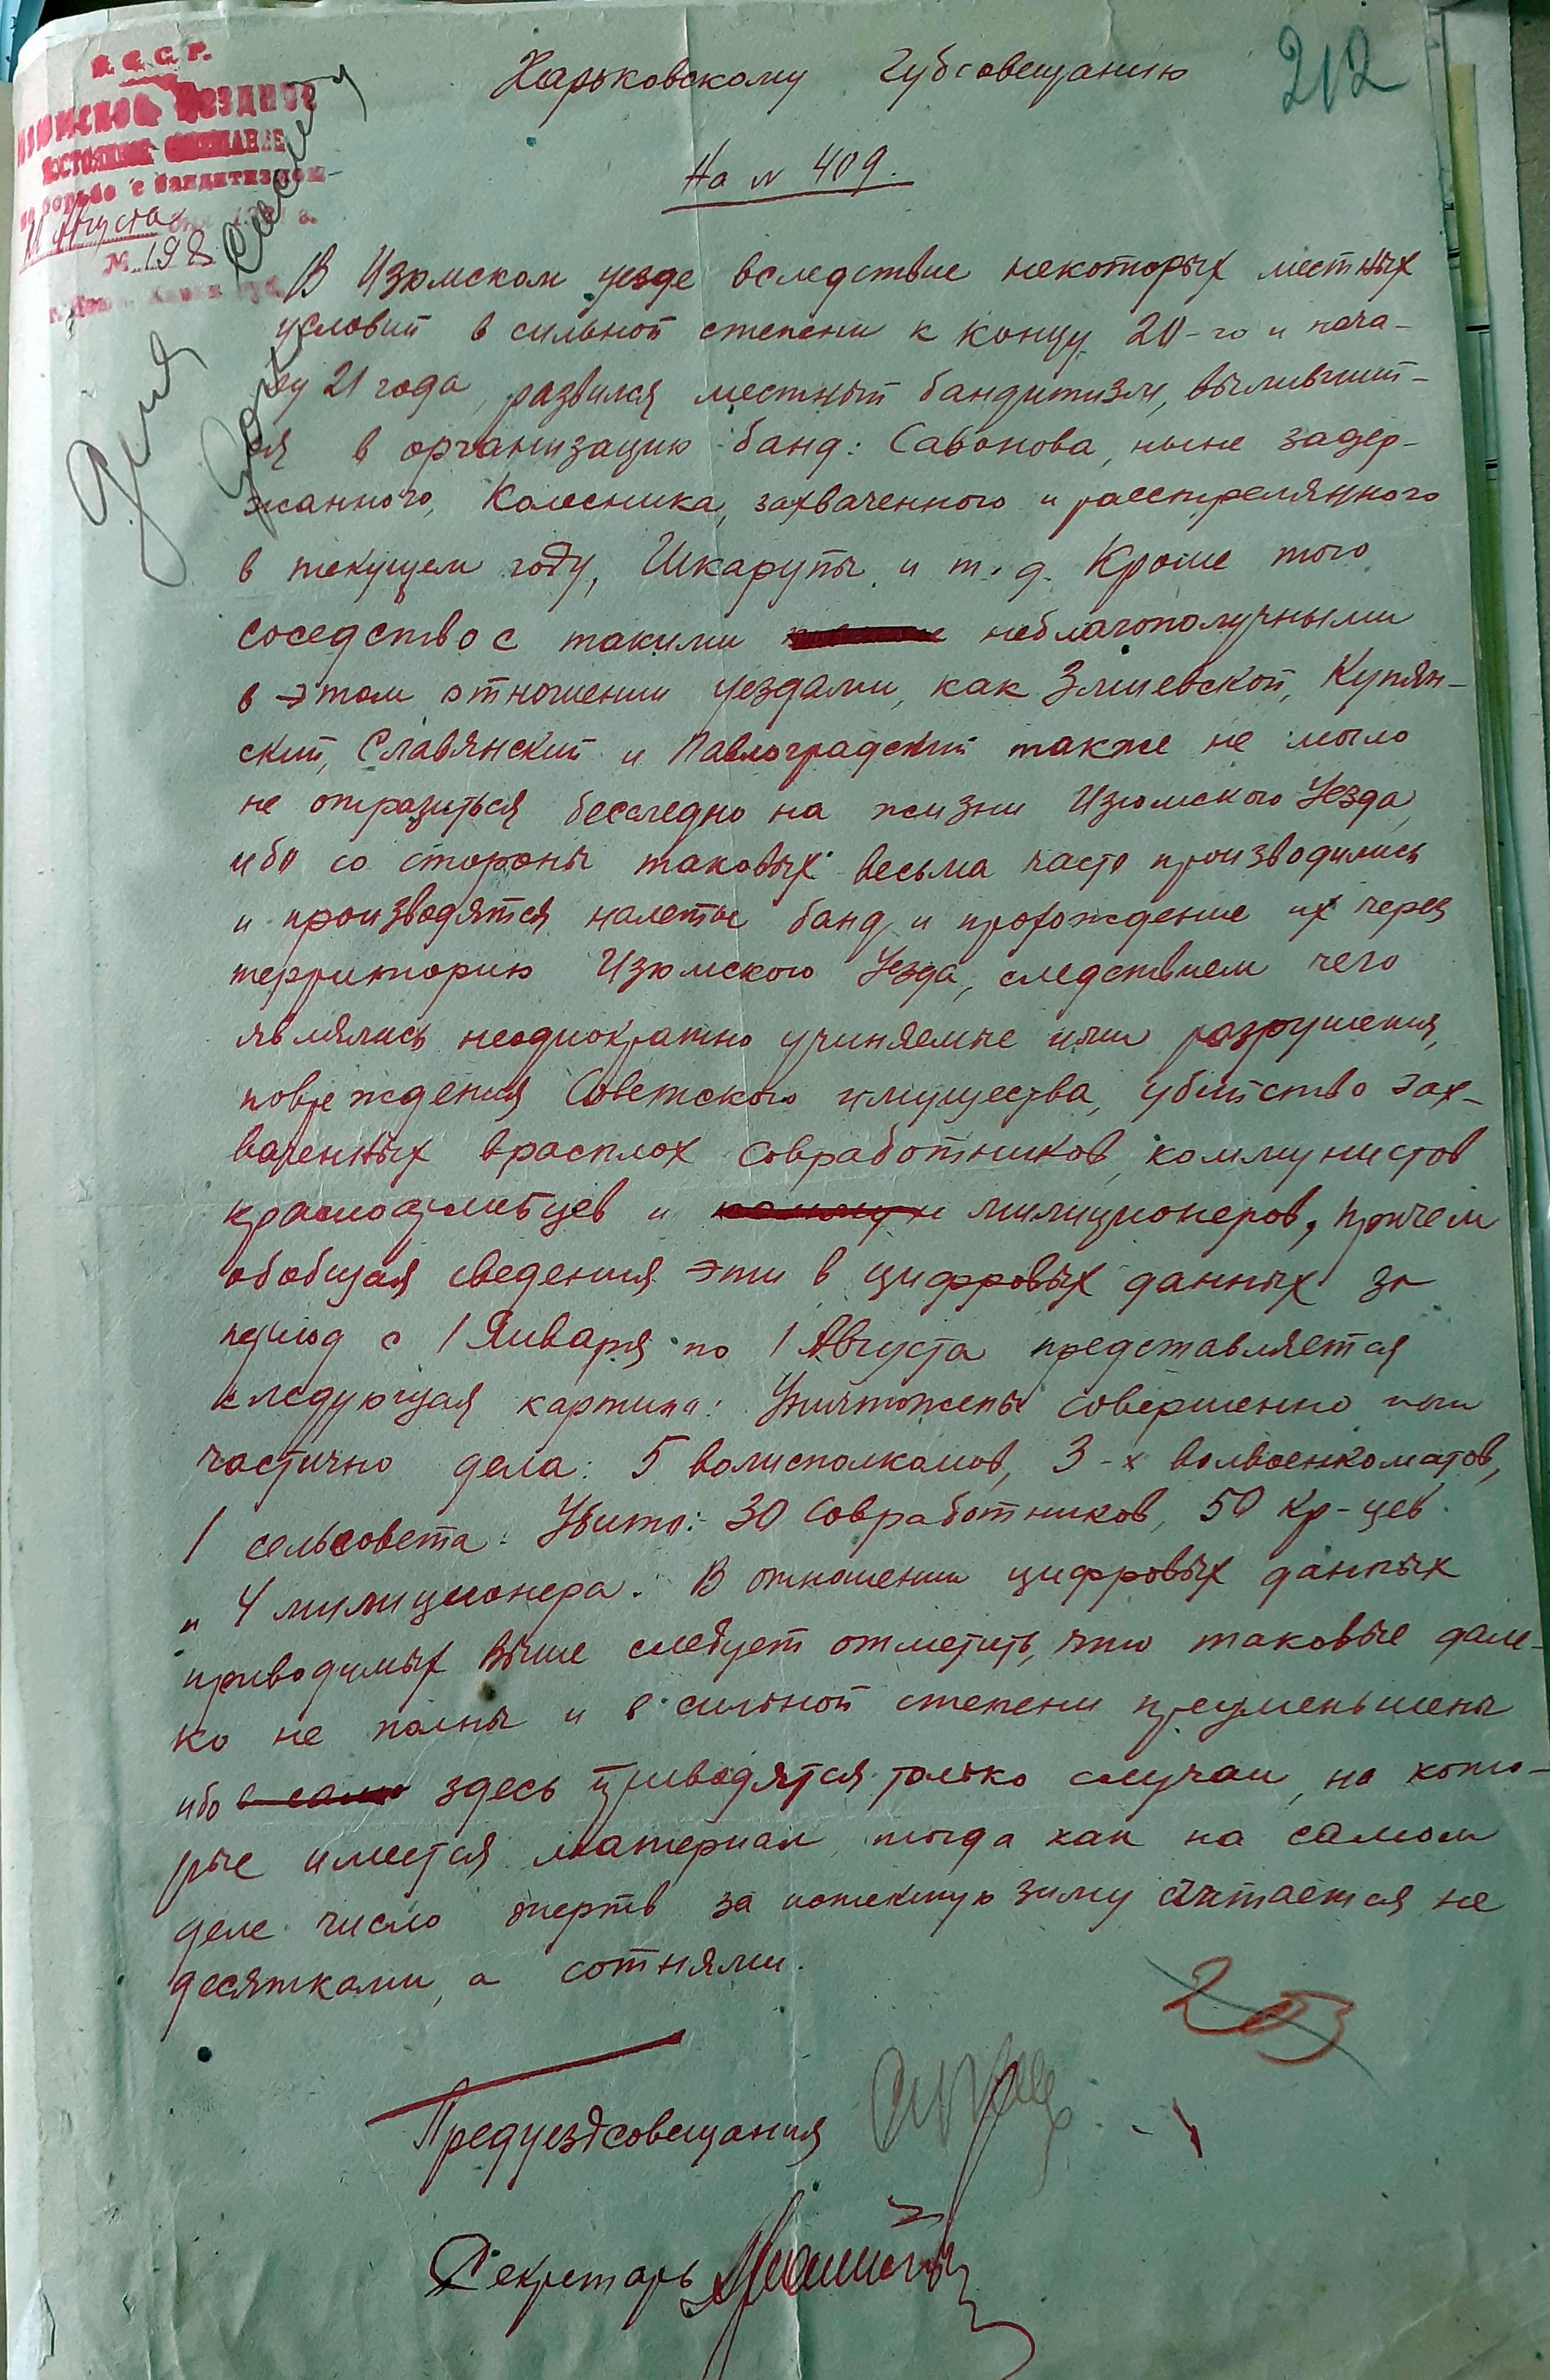 У.С.С.Р.
Изюмское Уездное
постоянное совещание
по борьбе с бандитизмом
11 Августа
№ 198
Харьковскому Губсовещанию
212
На № 409.
В Изюмском уезде вследствие некоторых местных
условий в сильной степени к концу 20-го и нача-
лу 21 года, развился местный бандитизм, выливший-
ся в организацию банд: Савонова, ныне задер-
жанного, Колесника, захваченного и расстрелянного
в текущем году, Шкарупы и т.д. Кроме того
соседство с такими неблагополучными
в этом отношении уездами, как Змиевской, Купян-
ский, Славянский и Павлоградский также не могло
не отразиться бесследно на жизни Изюмского Уезда,
ибо со стороны таковых весьма часто производились
и производятся налеты банд и прохождение их через
территорию Изюмского Уезда, следствием чего
являлись неоднократно учиняемые ими разрушения,
повреждения Советского имущества, убийство зах-
ваченных врасплох совработников, коммунистов
красноармейцев и милиционеров, причем
обобщая сведения эти в цифровых данных за
период с 1 Января по 1 Августа представляется
следующая картина: Уничтожены совершенно или
частично дела: 5 волисполкомов, 3-х волвоенкоматов,
1 сельсовета. Убито: 30 совработников, 50 кр-цев
и 4 милиционера. В отношении цифровых данных
приводимых выше следует отметить, что таковые дале-
ко не полны и в сильной степени преуменьшены
ибо здесь приводятся только случаи, на кото-
рые имеется материал, тогда как на самом
деле число жертв за истекшую зиму считается не
десятками, а сотнями.
203
Предуездсовещания
Секретарь